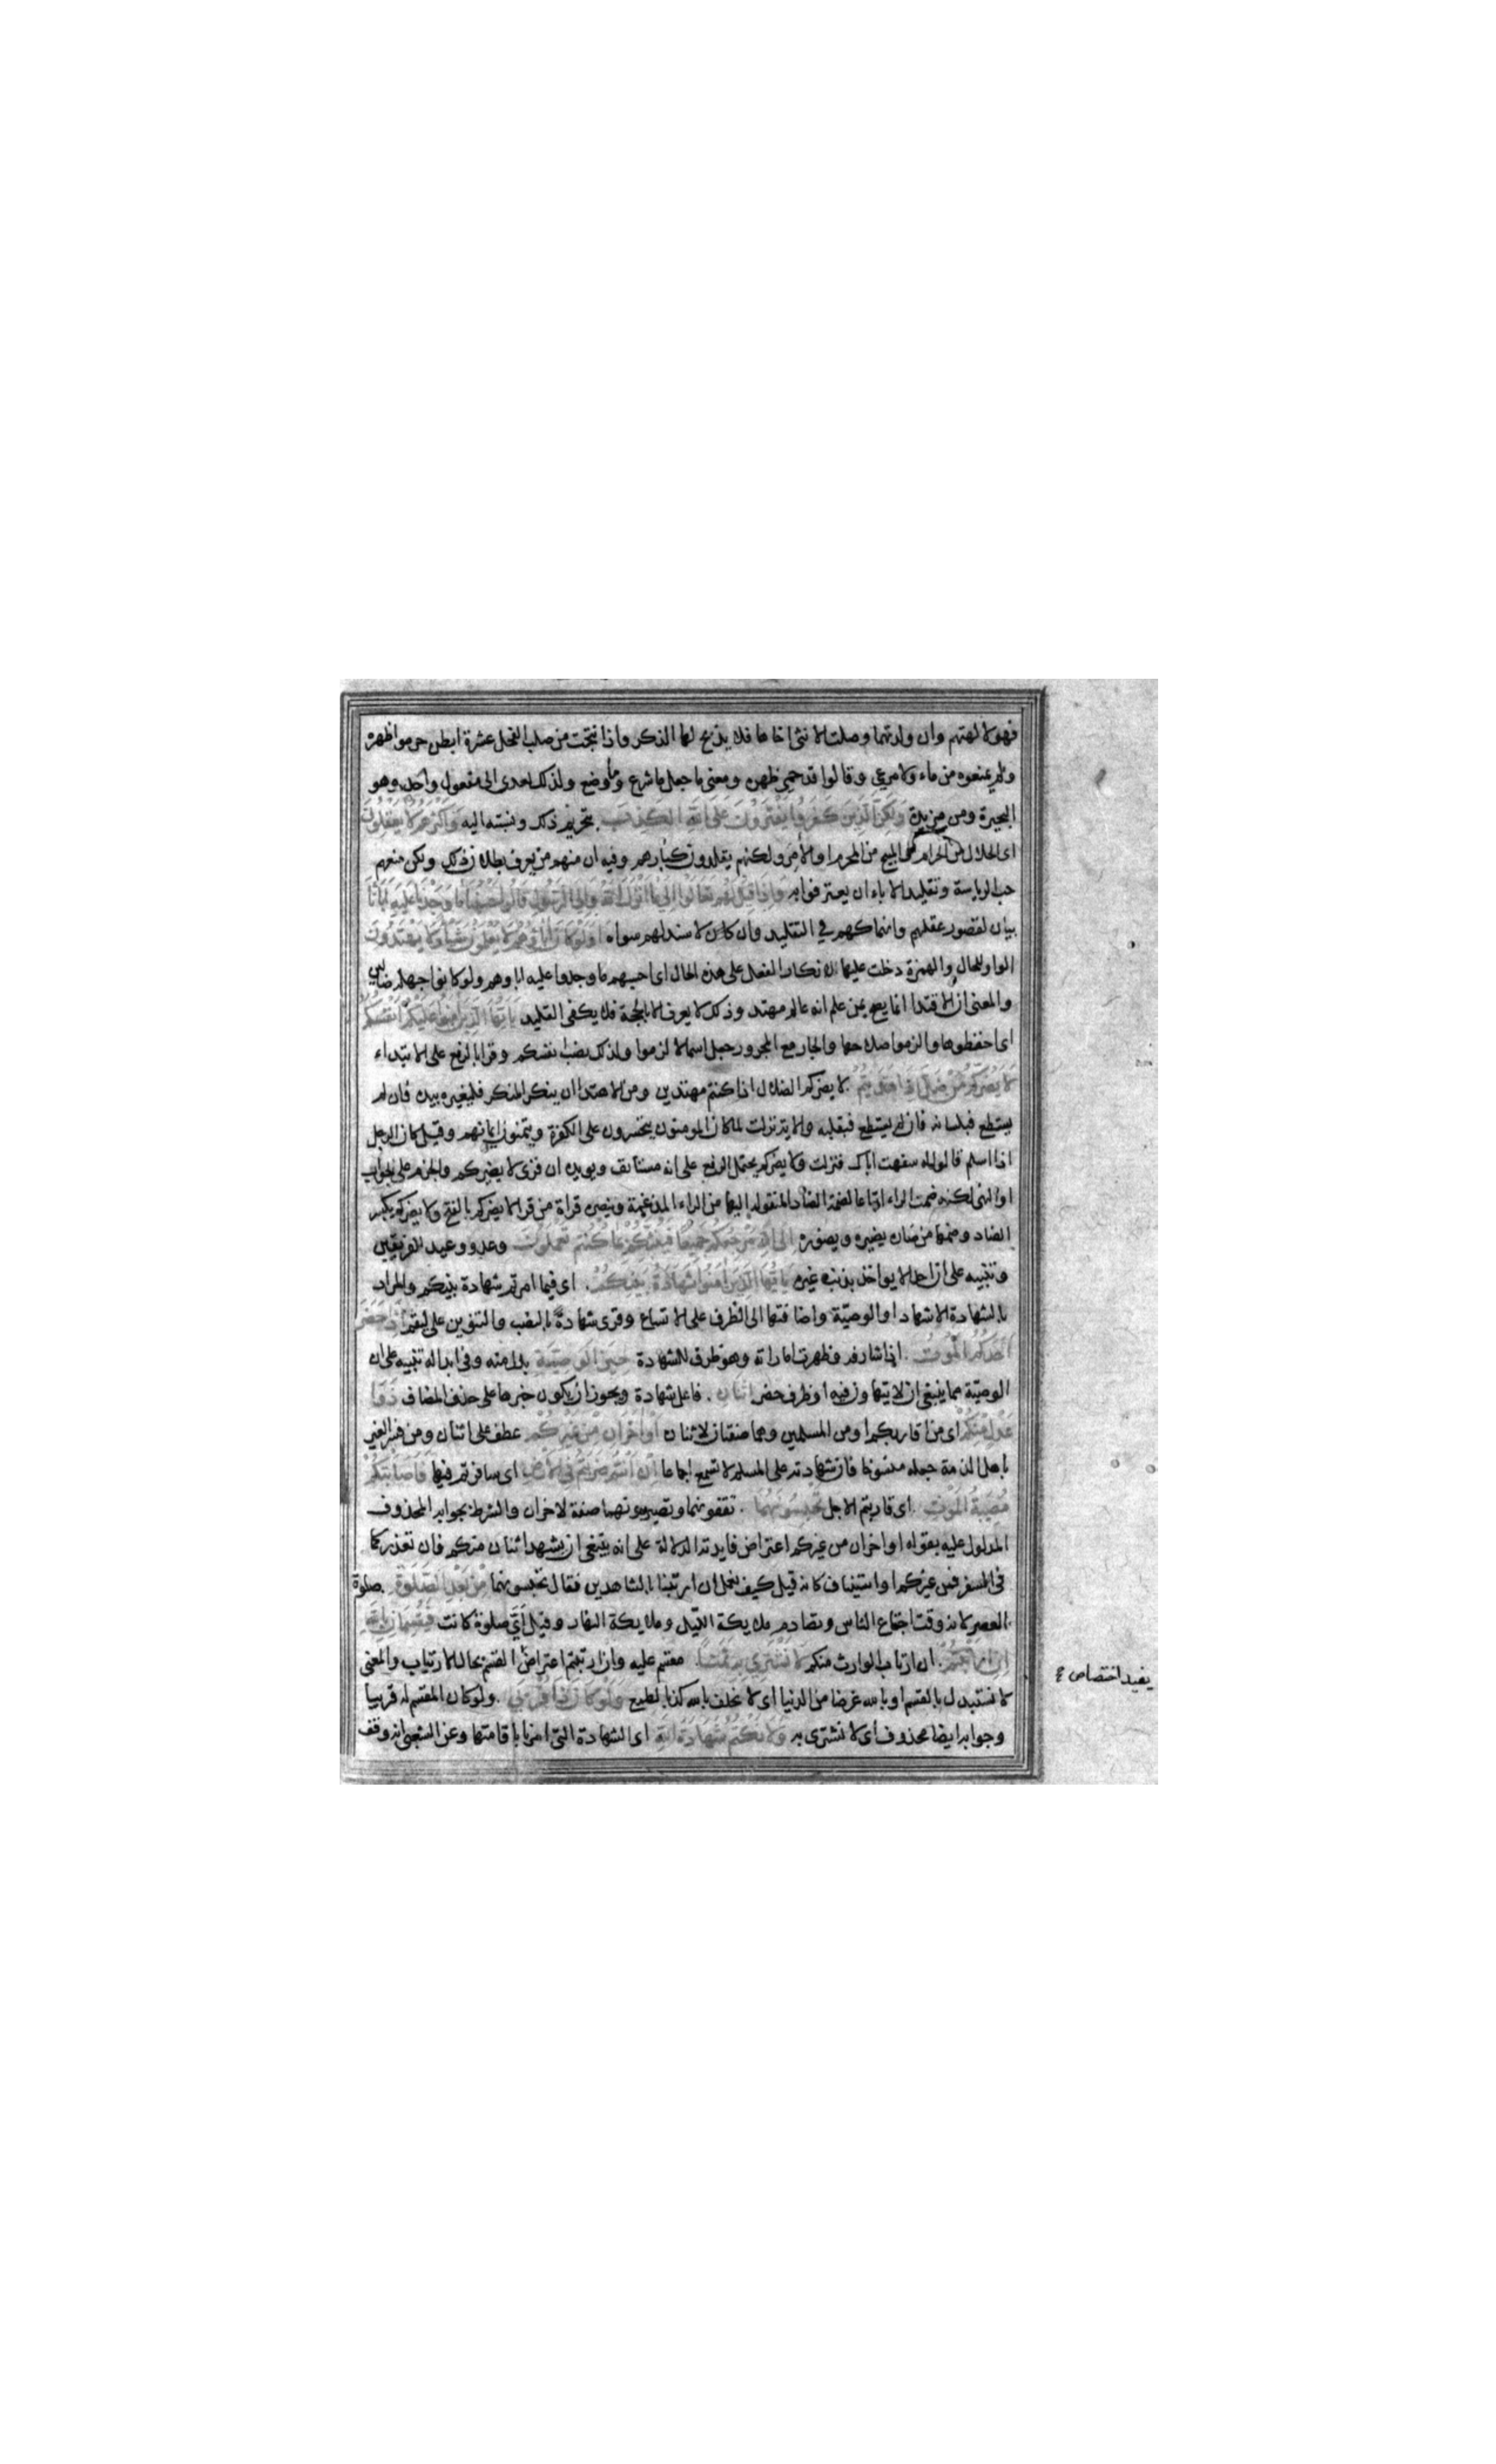 فهو لالهتهم وان ولدتهما وصلت الانثى اخاها فلا يذبح لها الذكر واذا نتجت من صلب الفحل عشرة ابطن حرموا ظهره
ولم يمنعوه من ماء ولا مرعى وقالوا قد حمى ظهره ومعنى ما جعل ما شرع وما وضع ولذلك تعدى الى مفعول واحد وهو
البحيرة ومن مزيدة وَلَكِنَّ الَّذِينَ كَفَرُوا يَفْتَرُونَ عَلَى اللَّهِ الْكَذِبَ بتحريم ذلك ونسبته اليه وَأَكْثَرُهُمْ لَا يَعْقِلُونَ
اى الحلال من الحرام المبيح من المحرم او الامر ولكنهم يقلدون كبارهم وفيه ان منهم من يعرف بطلان ذلك ولكن منعهم
حب الرياسة وتقليد الاباء ان يعترفوا به وَإِذَا قِيلَ لَهُمْ تَعَالَوْا إِلَى مَا أَنْزَلَ اللَّهُ وَإِلَى الرَّسُولِ قَالُوا حَسْبُنَا مَا وَجَدْنَا عَلَيْهِ آبَاءَنَا
بيان لقصور عقلهم وانهماكهم في التقليد وان لا سند لهم سواه أَوَلَوْ كَانَ آبَاؤُهُمْ لَا يَعْلَمُونَ شَيْئًا وَلَا يَهْتَدُونَ
الواو للحال والهمزة دخلت عليها لانكار الفعل على هذه الحال اى احسبهم ما وجدوا عليه اباوهم ولو كانوا جهلة ضالين
والمعنى ان الاقتدا انما يصح بمن علم انه عالم مهتد وذلك لا يعرف الا بالحجة فلا يكفى التقليد يَا أَيُّهَا الَّذِينَ آمَنُوا عَلَيْكُمْ أَنْفُسَكُمْ
اى احفظوها والزموا صلاحها والجار مع المجرور جعل اسما لالزموا ولذلك نصب انفسكم وقرا بالرفع على الابتداء
لَا يَضُرُّكُمْ مَنْ ضَلَّ إِذَا اهْتَدَيْتُمْ لا يضركم الضلال اذا كنتم مهتدين ومن الاهتدا ان ينكر المنكر فليغيره بيده فان لم
يستطع فبلسانه فان لم يستطع فبقلبه والاية نزلت لما كان المومنون يتحسرون على الكفرة ويتمنون ايمانهم وقيل كان الرجل
اذا اسلم قالوا له سفهت اباك فنزلت ولا يضركم يحتمل الرفع على انه مستانف ويويده ان قرى لا يضيركم والجزم على الجواب
او النهى لكنه ضمت الراء اتباعا لضمة الضاد المنقولة اليها من الراء المدغمة وينصره قراة من قرا لا يضركم بالفتح ولا يضركم بكسر
الضاد وضمها من ضاره يضيره ويضوره إِلَى اللَّهِ مَرْجِعُكُمْ جَمِيعًا فَيُنَبِّئُكُمْ بِمَا كُنْتُمْ تَعْمَلُونَ وعد ووعيد للفريقين
وتنبيه على ان احدا لا يواخذ بذنب غيره يَا أَيُّهَا الَّذِينَ آمَنُوا شَهَادَةُ بَيْنِكُمْ اى فيما امرتم شهادة بينكم والمراد
بالشهادة الاشهاد او الوصيّة واضافتها الى الظرف على الاتساع وقرى شهادةً بالنصب والتنوين على ليقم إِذَا حَضَرَ
أَحَدَكُمُ الْمَوْتُ اذا شارفه وظهرت اماراته وهو ظرف للشهادة حِينَ الْوَصِيَّةِ بدل منه وفى ابداله تنبيه على ان
الوصيّة مما ينبغى ان لا يتهاون فيه او ظرف حضر اثْنَانِ فاعل شهادة ويجوز ان يكون خبرها على حذف المضاف ذَوَا
عَدْلٍ مِنْكُمْ اى من اقاربكم او من المسلمين وهما صفتان لاثنان أَوْ آخَرَانِ مِنْ غَيْرِكُمْ عطف على اثنان ومن فسر الغير
باهل الذمة جعله منسوخا فان شهادته على المسلم لا تسمع اجماعا إِنْ أَنْتُمْ ضَرَبْتُمْ فِي الْأَرْضِ اى سافرتم فيها فَأَصَابَتْكُمْ
مُصِيبَةُ الْمَوْتِ اى قاربتم الاجل تَحْبِسُونَهُمَا تقفونهما وتصبرونهما صفة لاخران والشرط بجوابه المحذوف
المدلول عليه بقوله او اخران من غيركم اعتراض فايدته الدلالة على انه ينبغى ان يشهد اثنان منكم فان تعذر كما
فى السفر فمن غيركم او استيناف كانه قيل كيف نعمل ان ارتبنا بالشاهدين فقال تحبسونهما مِنْ بَعْدِ الصَّلَوةِ صلوة
العصر لانه وقت اجتماع الناس وتصادم ملايكة الليل وملايكة النهار وقيل اَيُّ صلوة كانت فَيُقْسِمَانِ بِاللَّهِ
إِنِ ارْتَبْتُمْ ان ارتاب الوارث منكم لَا نَشْتَرِي بِهِ ثَمَنًا مقسم عليه وان ارتبتم اعتراض القسم بحال الارتياب والمعنى
يفيد اختصاص
لا نستبدل بالقسم او بالله عرضا من الدنيا اى لا نحلف بالله كذبا لطمع وَلَوْ كَانَ ذَا قُرْبَى ولو كان المقسم له قريبا
وجوابه ايضا محذوف اى لا نشترى به وَلَا نَكْتُمُ شَهَادَةَ اللَّهِ اى الشهادة التى امرنا باقامتها وعن الشعبى انه وقف